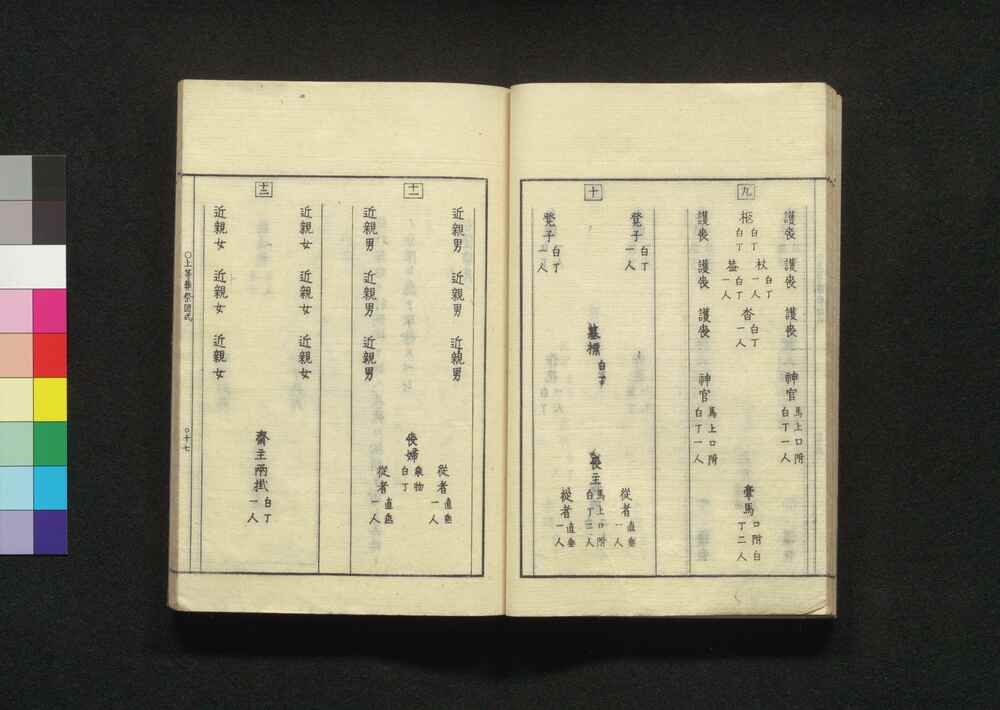 九
護喪 護喪 護喪 神官 馬上口附 白丁一人
柩 白丁 杖 白丁一人
白丁一人
沓 白丁一人
牽馬 口附白丁二人
護喪 護喪 護喪 神官 馬上口附 白丁一人
十
凳子 白丁一人
墓標 白丁
喪主 馬上口附 白丁二人
從者 直垂一人
從者 直垂一人
凳子 白丁一人
十一
近親男 近親男 近親男
從者 直垂一人
喪婦 乘物 白丁
從者 直垂一人
近親男 近親男 近親男
十二
近親女 近親女 近親女
齋主兩掛 白丁一人
近親女 近親女 近親女
○上等葬祭圖式
○十七